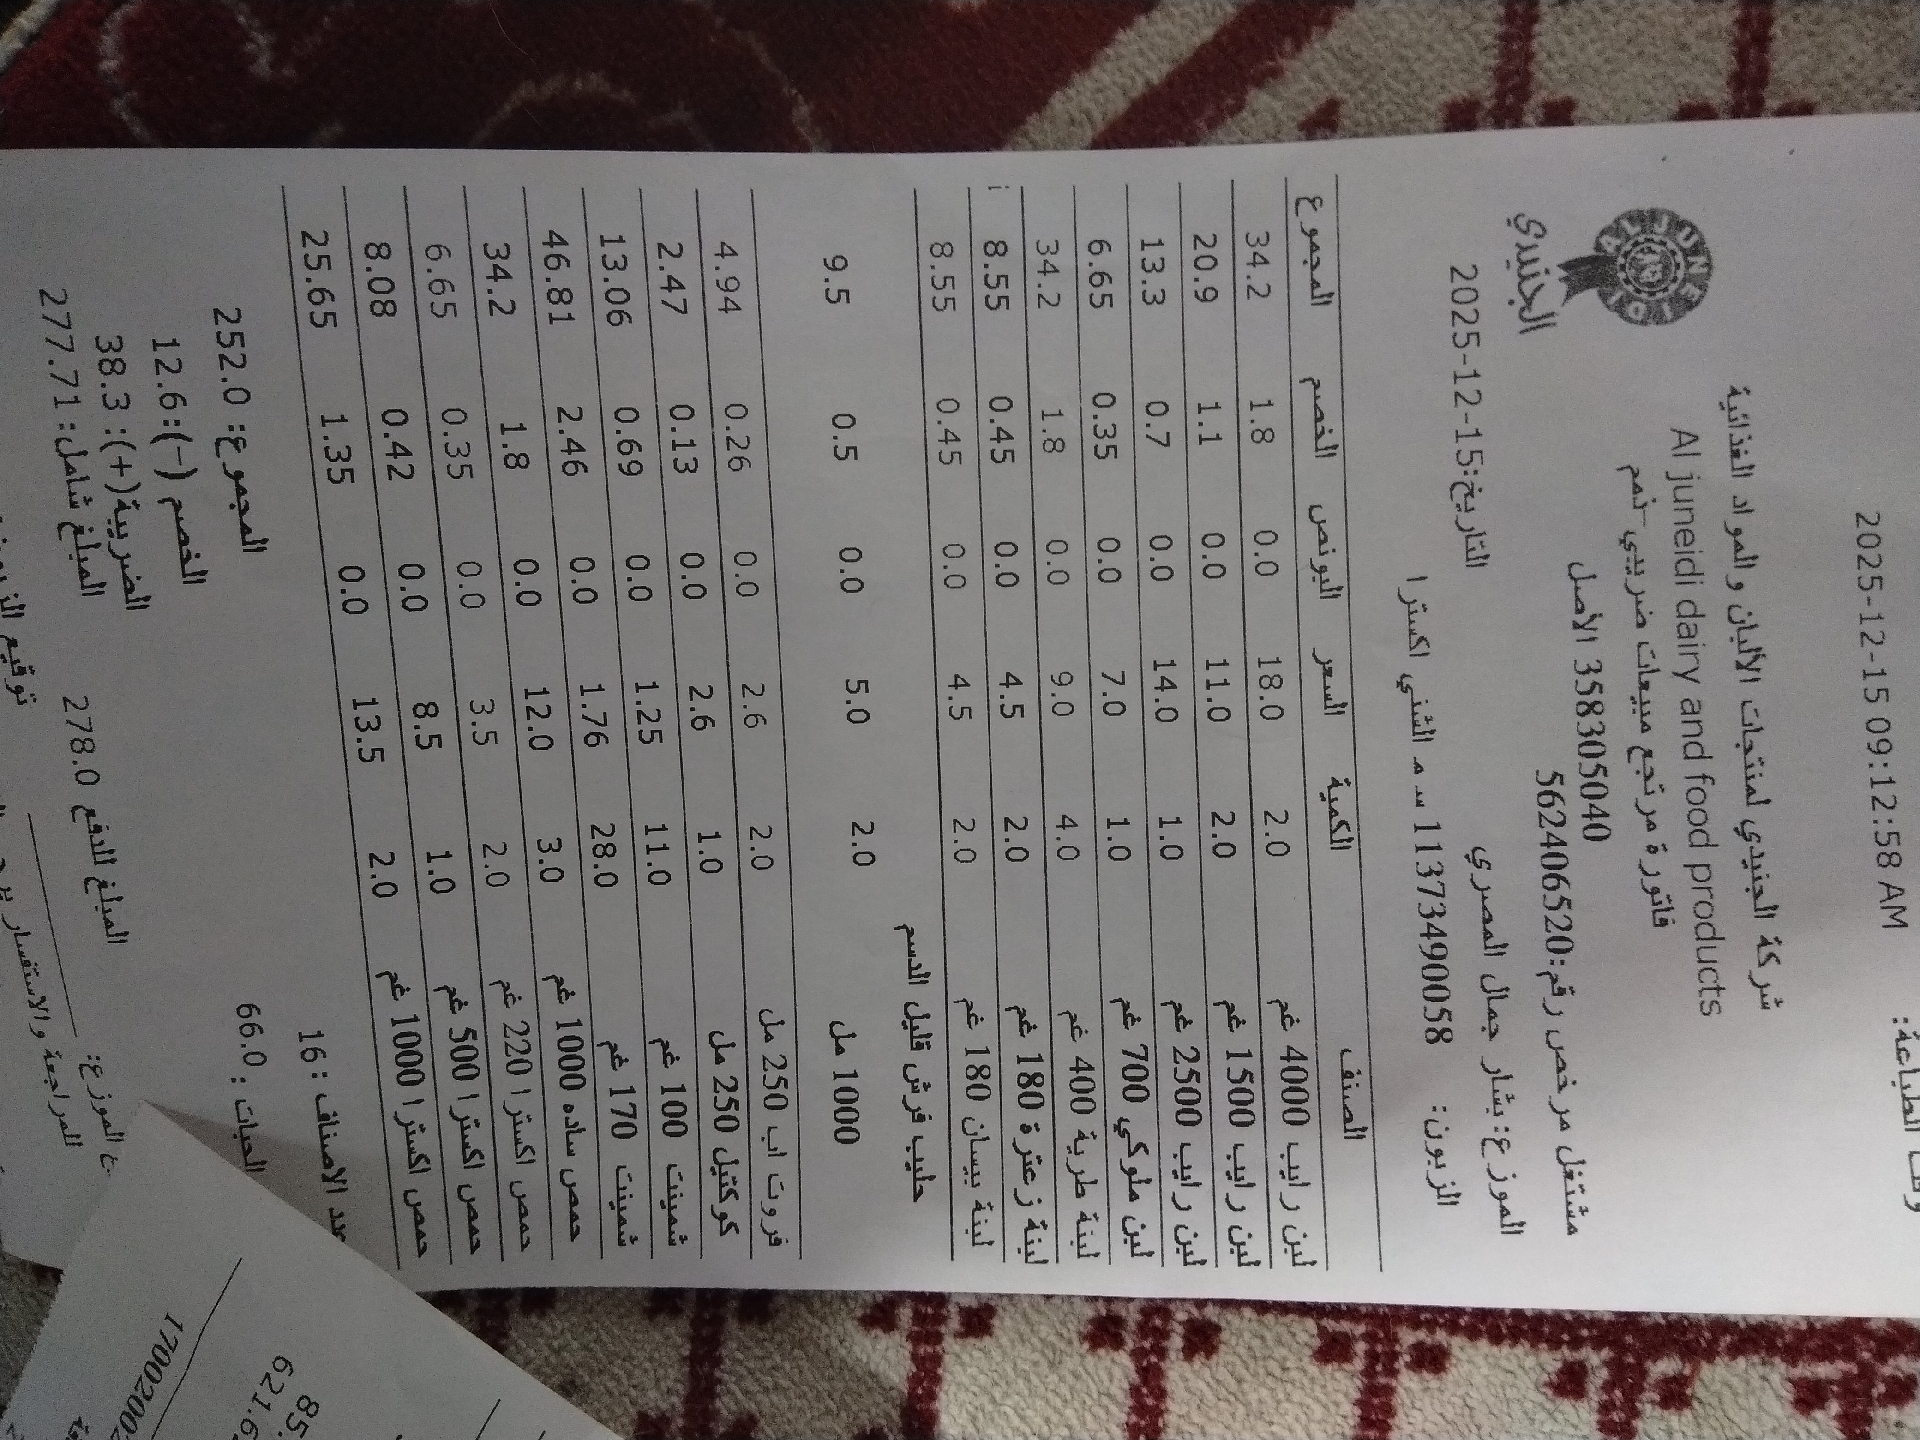 2025-12-15 09:12:58 AM
شركة الجنيدي لمنتجات الألبان والمواد الغذائية
Al juneidi dairy and food products
فاتورة مرتجع مبيعات ضريبي-نمم
358305040 الأصل
مشتغل مرخص رقم:562406520
AL JUNEIDI
الجنيدي
الموزع: بشار جمال المصري
التاريخ:2025-12-15
الزبون: 11373490058 س م الشني اكسترا
الصنف الكمية السعر البونص الخصم المجموع
لبن رايب 4000 غم 2.0 18.0 0.0 1.8 34.2
لبن رايب 1500 غم 2.0 11.0 0.0 1.1 20.9
لبن رايب 2500 غم 1.0 14.0 0.0 0.7 13.3
لبن ملوكي 700 غم 1.0 7.0 0.0 0.35 6.65
لبنة طرية 400 غم 4.0 9.0 0.0 1.8 34.2
لبنة زعترة 180 غم 2.0 4.5 0.0 0.45 8.55
لبنة بيسان 180 غم 2.0 4.5 0.0 0.45 8.55
حليب فرش قليل الدسم
1000 مل 2.0 5.0 0.0 0.5 9.5
فروت اب 250 مل 2.0 2.6 0.0 0.26 4.94
كوكتيل 250 مل 1.0 2.6 0.0 0.13 2.47
شمينت 100 غم 11.0 1.25 0.0 0.69 13.06
شمينت 170 غم 28.0 1.76 0.0 2.46 46.81
حمص ساده 1000 غم 3.0 12.0 0.0 1.8 34.2
حمص اكسترا 220 غم 2.0 3.5 0.0 0.35 6.65
حمص اكسترا 500 غم 1.0 8.5 0.0 0.42 8.08
حمص اكسترا 1000 غم 2.0 13.5 0.0 1.35 25.65
عدد الاصناف : 16
الحبات : 66.0
المجموع: 252.0
الخصم (-):12.6
الضريبة(+): 38.3
المبلغ شامل: 277.71
المبلغ للدفع 278.0
الموزع:
توقيع
للمراجعة والاستفسار